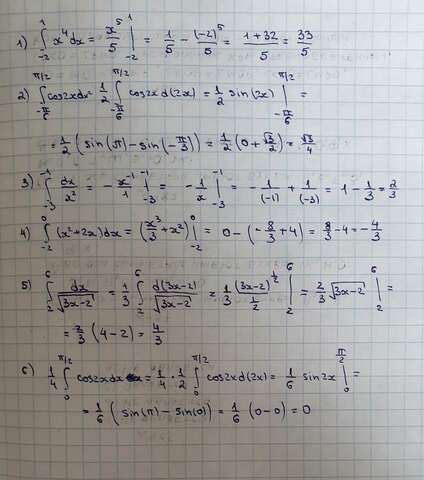 1) ∫₋₂¹ x⁴dx = x⁵/5 |₋₂¹ = 1/5 - (-2)⁵/5 = (1+32)/5 = 33/5
2) ∫_{-π/6}^{π/2} cos2xdx = 1/2 ∫_{-π/6}^{π/2} cos2xd(2x) = 1/2 sin(2x) |_{-π/6}^{π/2} =
= 1/2 (sin(π) - sin(-π/3)) = 1/2 (0 + √3/2) = √3/4
3) ∫₋₃⁻¹ dx/x² = - x⁻¹/1 |₋₃⁻¹ = - 1/x |₋₃⁻¹ = - 1/(-1) + 1/(-3) = 1 - 1/3 = 2/3
4) ∫₋₂⁰ (x²+2x)dx = (x³/3 + x²) |₋₂⁰ = 0 - (-8/3 + 4) = 8/3 - 4 = - 4/3
5) ∫₂⁶ dx/√(3x-2) = 1/3 ∫₂⁶ d(3x-2)/√(3x-2) = 1/3 (3x-2)^{1/2}/(1/2) |₂⁶ = 2/3 √(3x-2) |₂⁶ =
= 2/3 (4-2) = 4/3
6) 1/4 ∫₀^{π/2} cos2xdx = 1/4 · 1/2 ∫₀^{π/2} cos2xd(2x) = 1/6 sin2x |₀^{π/2} =
= 1/6 (sin(π) - sin(0)) = 1/6 (0-0) = 0